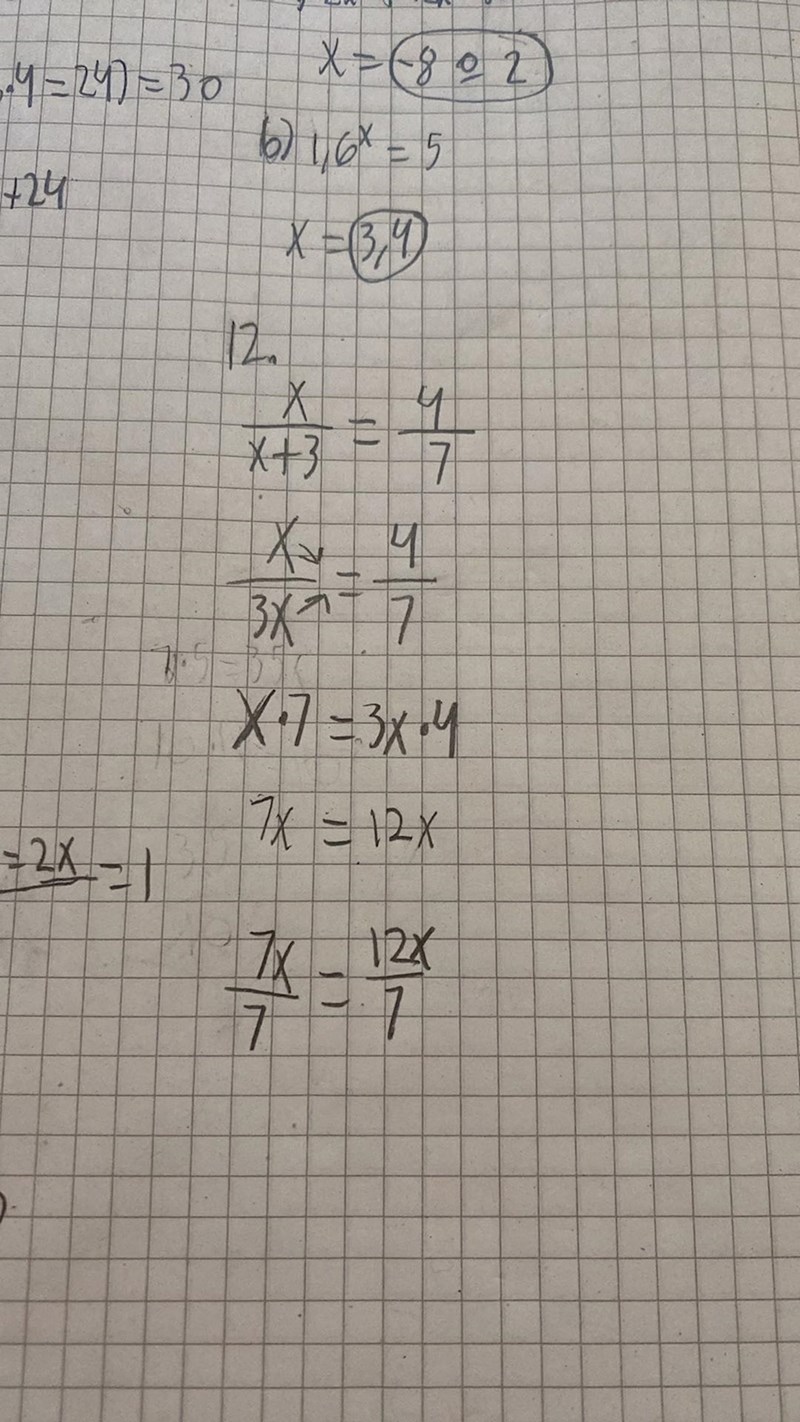 ·4=24)=30
+24
=2x/‾=1
x = -8 o 2
b) 1,6ˣ = 5
x = 3,4
12.
x/(x+3) = 4/7
x/3x = 4/7
7·5=35
x·7 = 3x·4
7x = 12x
7x/7 = 12x/7